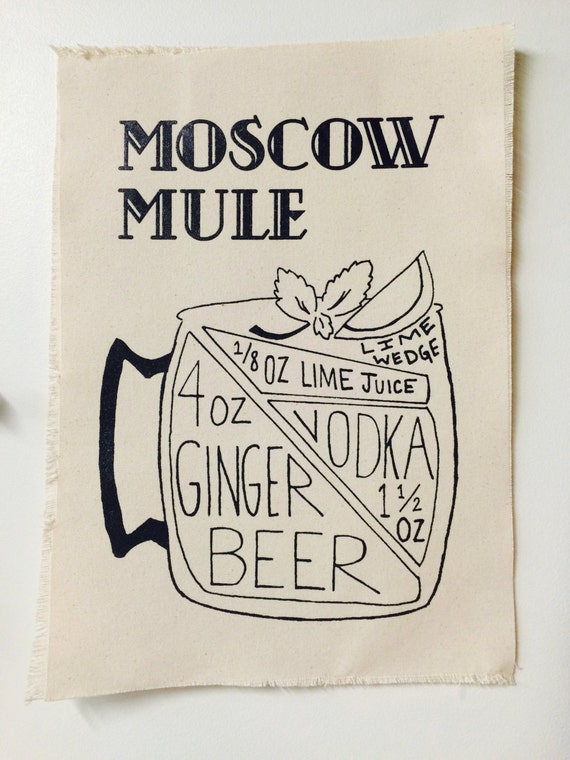 MOSCOW
MULE
LIME
WEDGE
1/8 OZ LIME JUICE
4 OZ
GINGER
BEER
VODKA
1 1/2
OZ